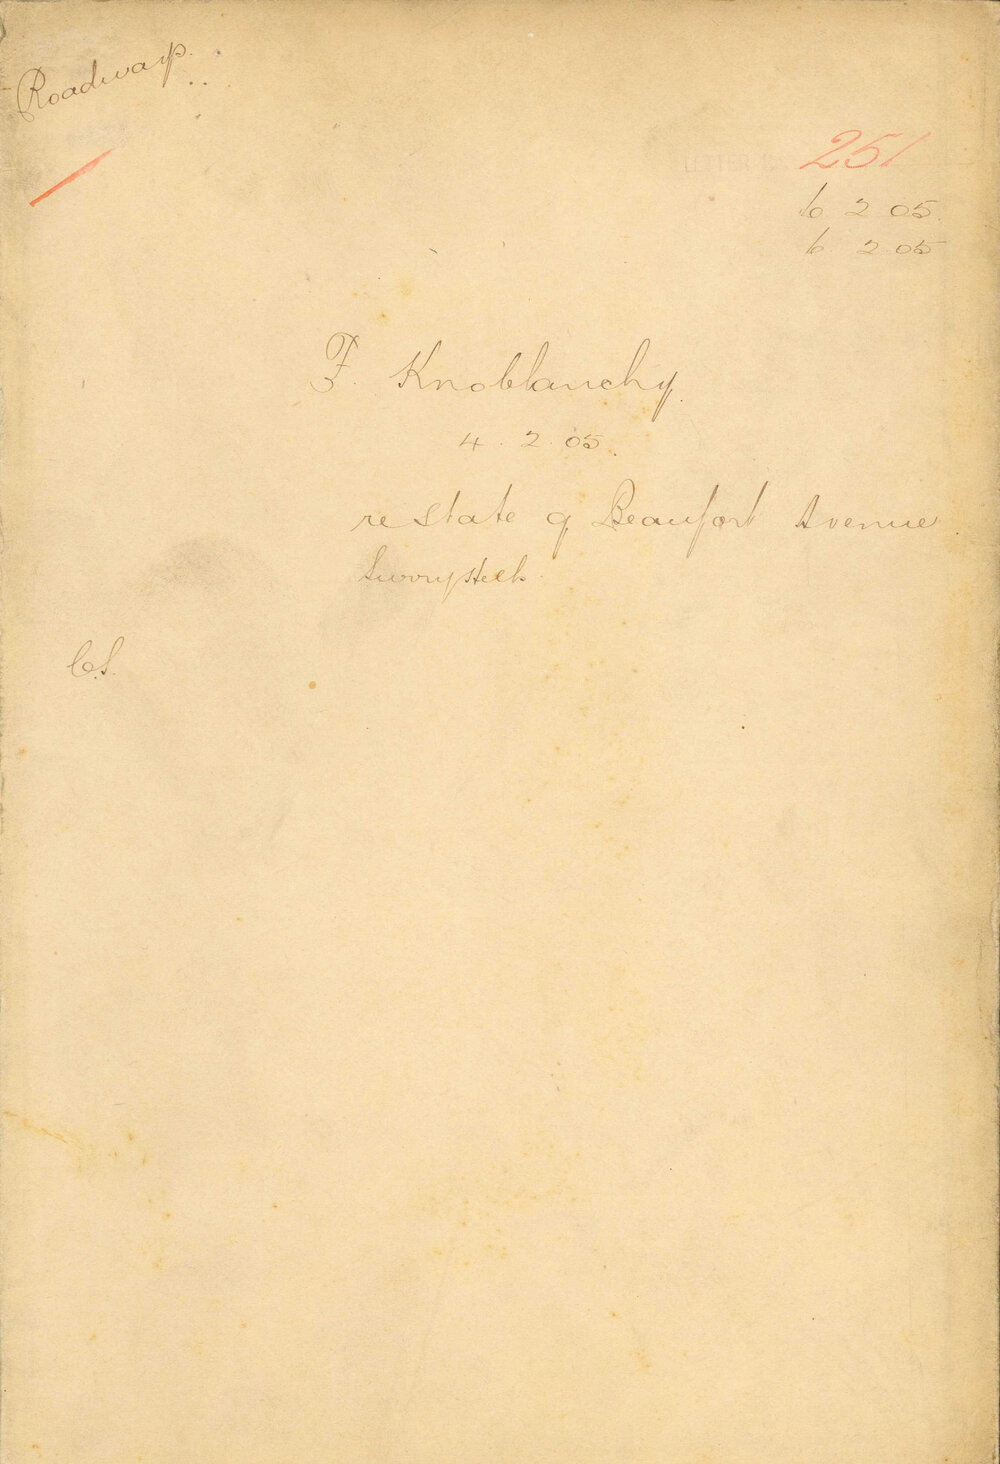 Roadways.
LETTER 251
6 2 05.
6. 2 05
F. Knoblanchy.
4. 2. 05.
re state of Beaufort Avenue
C.S.